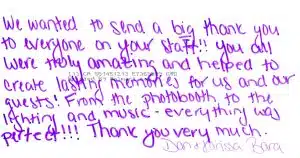 We wanted to send a big thank you
to everyone on your staff!! you all
were truly amazing and helped to
create lasting memories for us and our
guests! From the photobooth to the
lighting and music - everything was
perfect!!!! Thank you very much.
Dan +